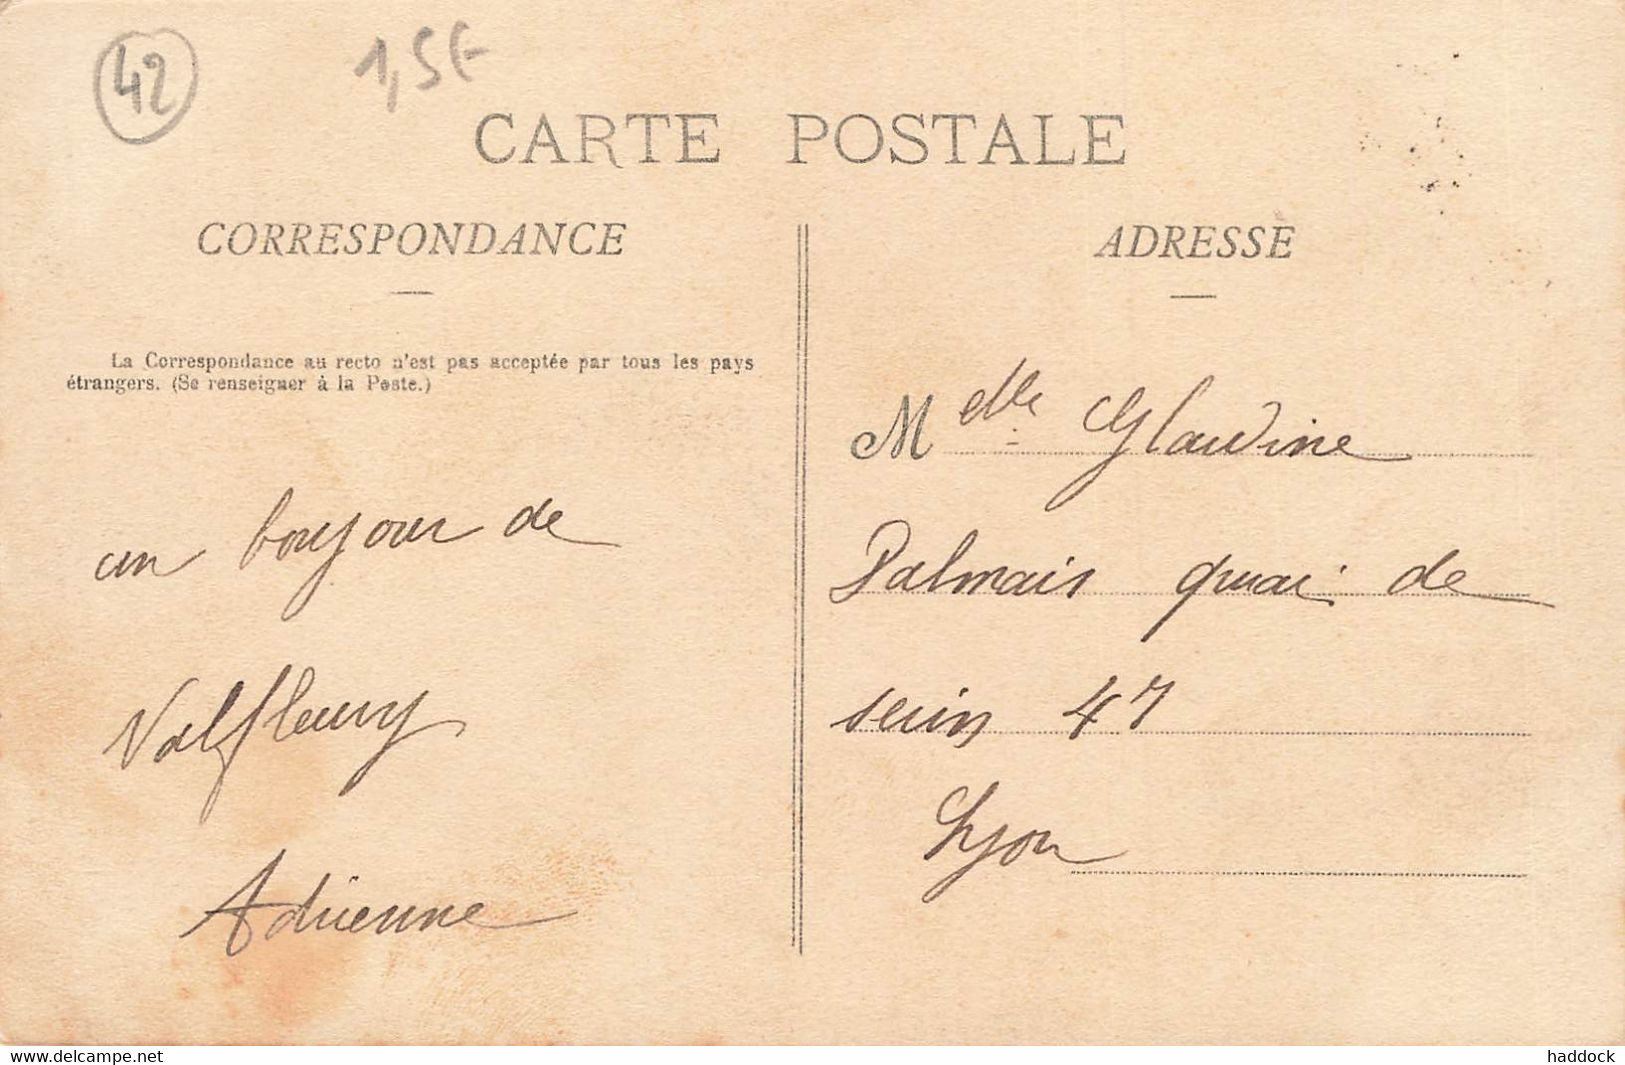 42
1,5€
CARTE POSTALE
CORRESPONDANCE
La Correspondance au recto n'est pas acceptée par tous les pays
étrangers. (Se renseigner à la Poste.)
un bonjour de
Valfleury
Adrienne
ADRESSE
Mdlle Glaudine
Palmais quai de
serin 47
Lyon
www.delcampe.net
haddock